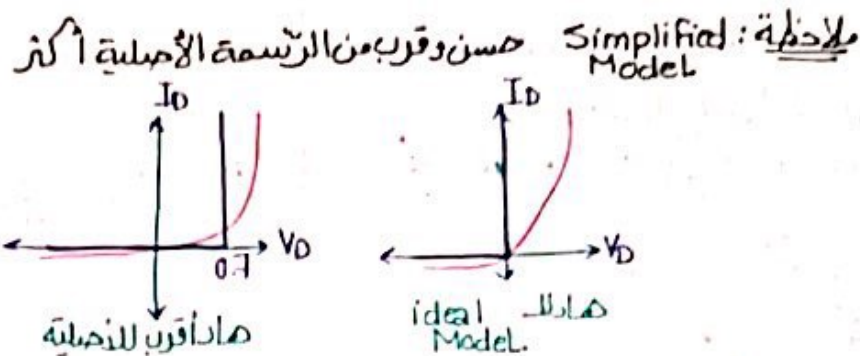 ملاحظة : Simplified Model حسن وقرب من الرّسمة الأصلية أكثر
ID
VD
0.7
هاد أقرب للأصلية
ID
VD
هاد للـ ideal Model.